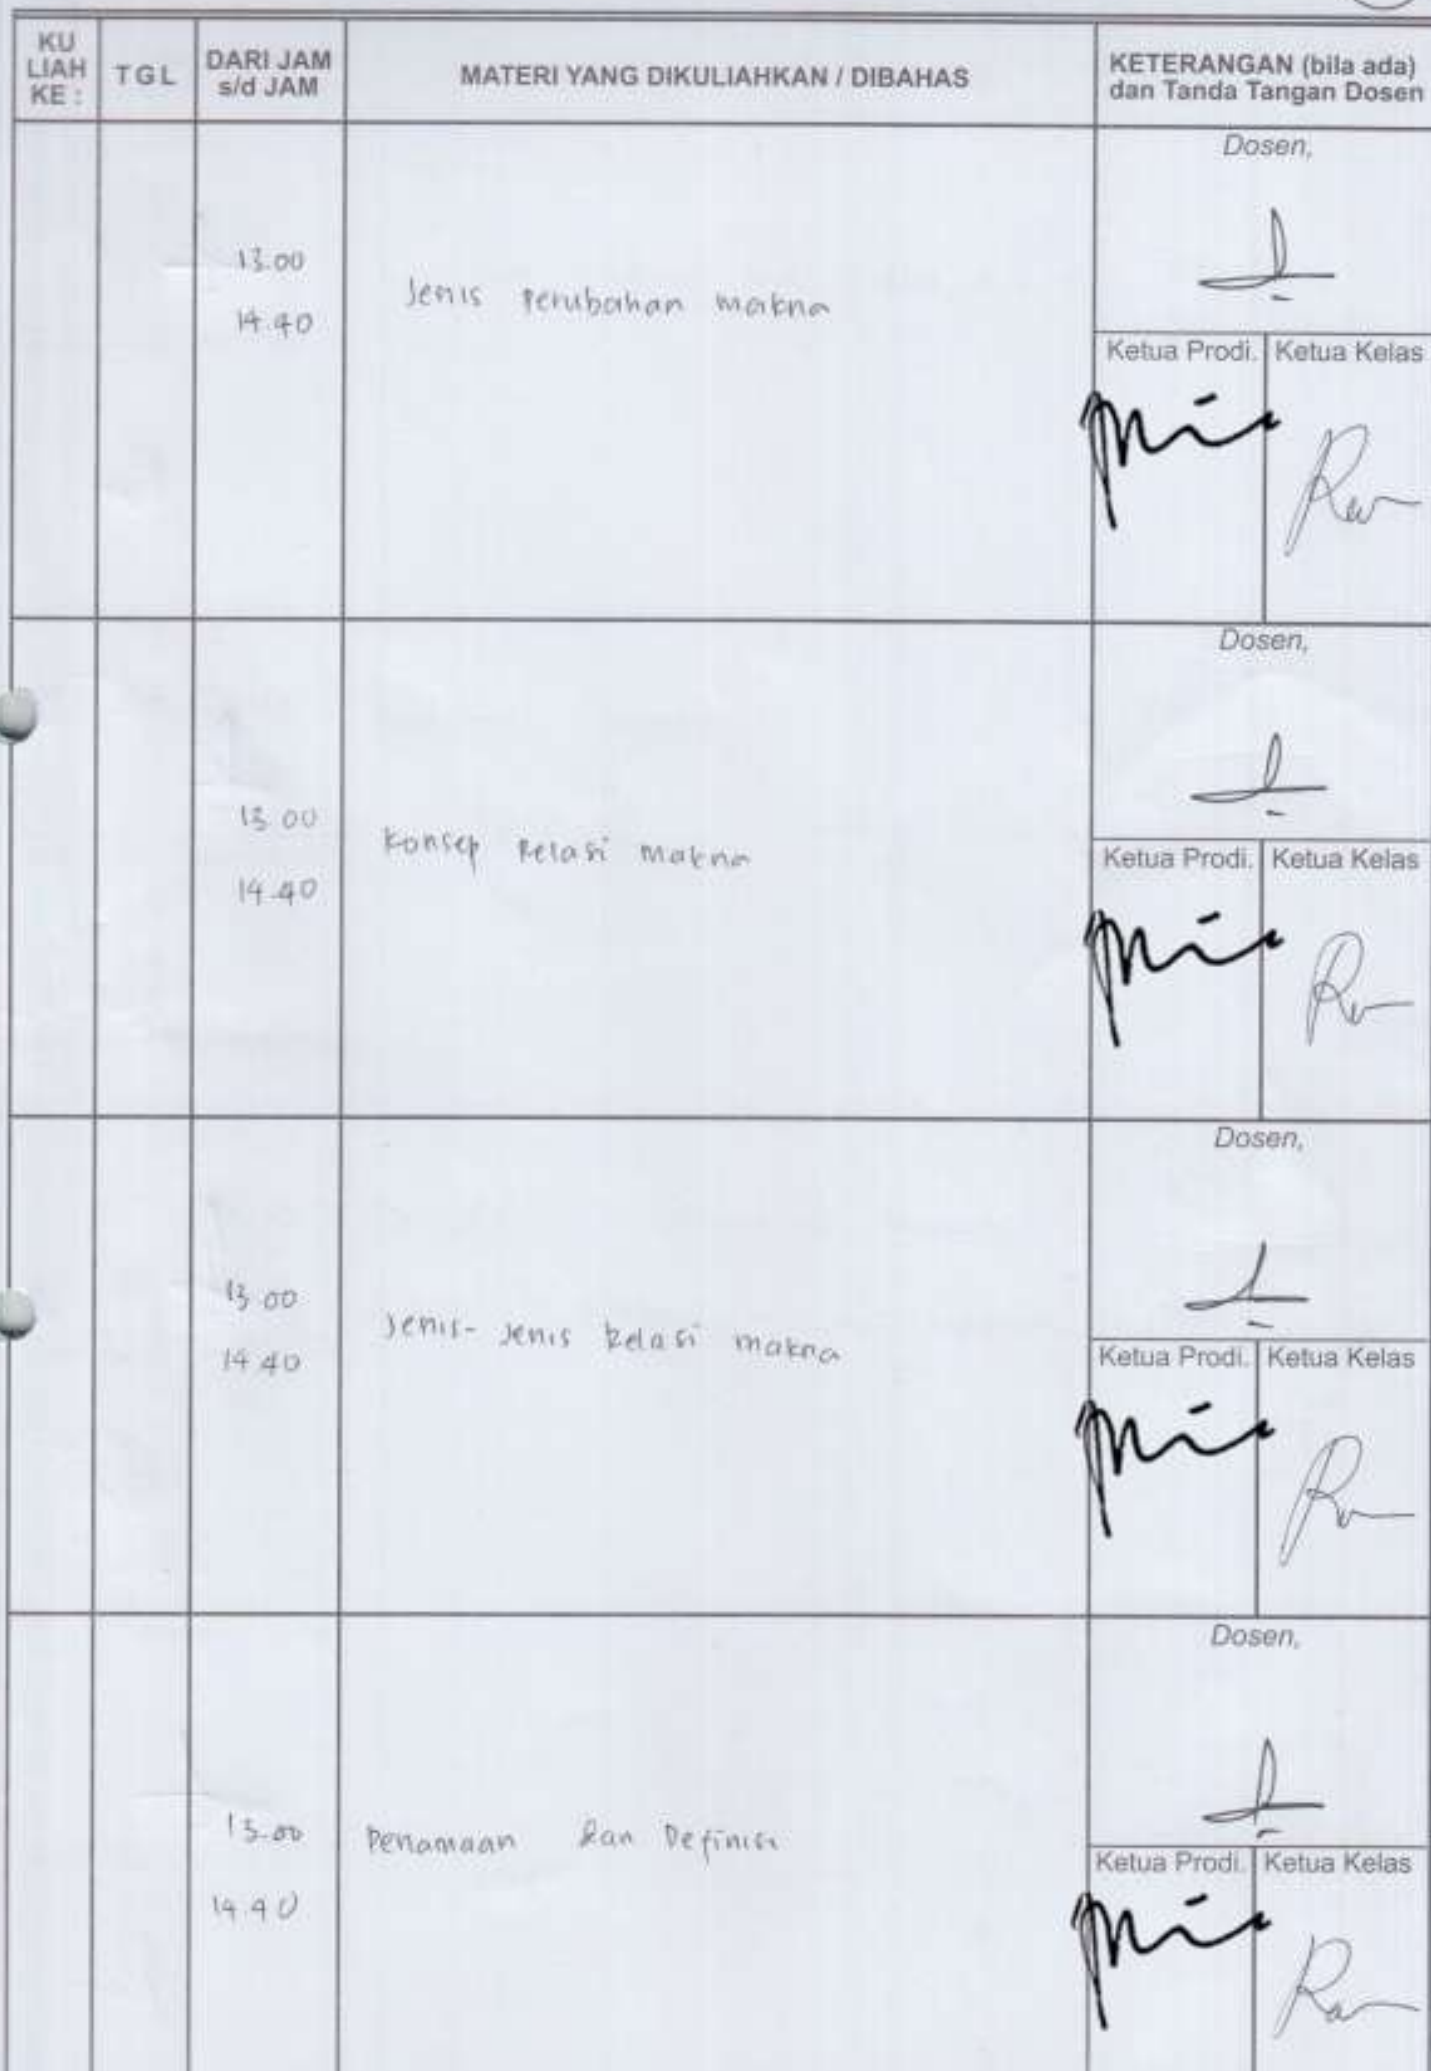 KU
LIAH
KE :
TGL
DARI JAM
s/d JAM
MATERI YANG DIKULIAHKAN / DIBAHAS
KETERANGAN (bila ada)
dan Tanda Tangan Dosen
Dosen,
13.00
14.40
Jenis perubahan makna
Ketua Prodi. Ketua Kelas
Dosen,
13.00
14.40
Konsep Relasi Makna
Ketua Prodi. Ketua Kelas
Dosen,
13.00
14.40
Jenis-Jenis Relasi makna
Ketua Prodi. Ketua Kelas
Dosen,
13.00
14.40
Penamaan dan Definisi
Ketua Prodi. Ketua Kelas